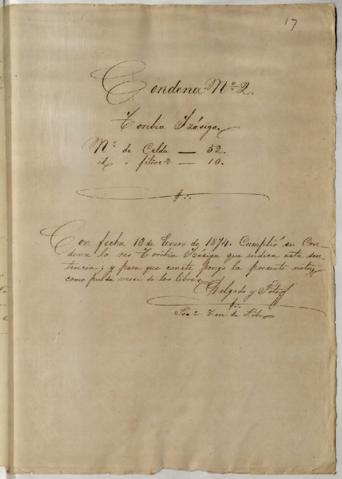 17
Condena Nº 2.
Toribia Izásiga.
Nº de Celda — 52.
id. " filiac — 10.
Con fecha 13 de Enero de 1874. Cumplió su Con-
dena la reo Toribia Izásiga que indica esta sen-
tencia; y para que conste pongo la presente nota,
como de los libros.
Delgado y